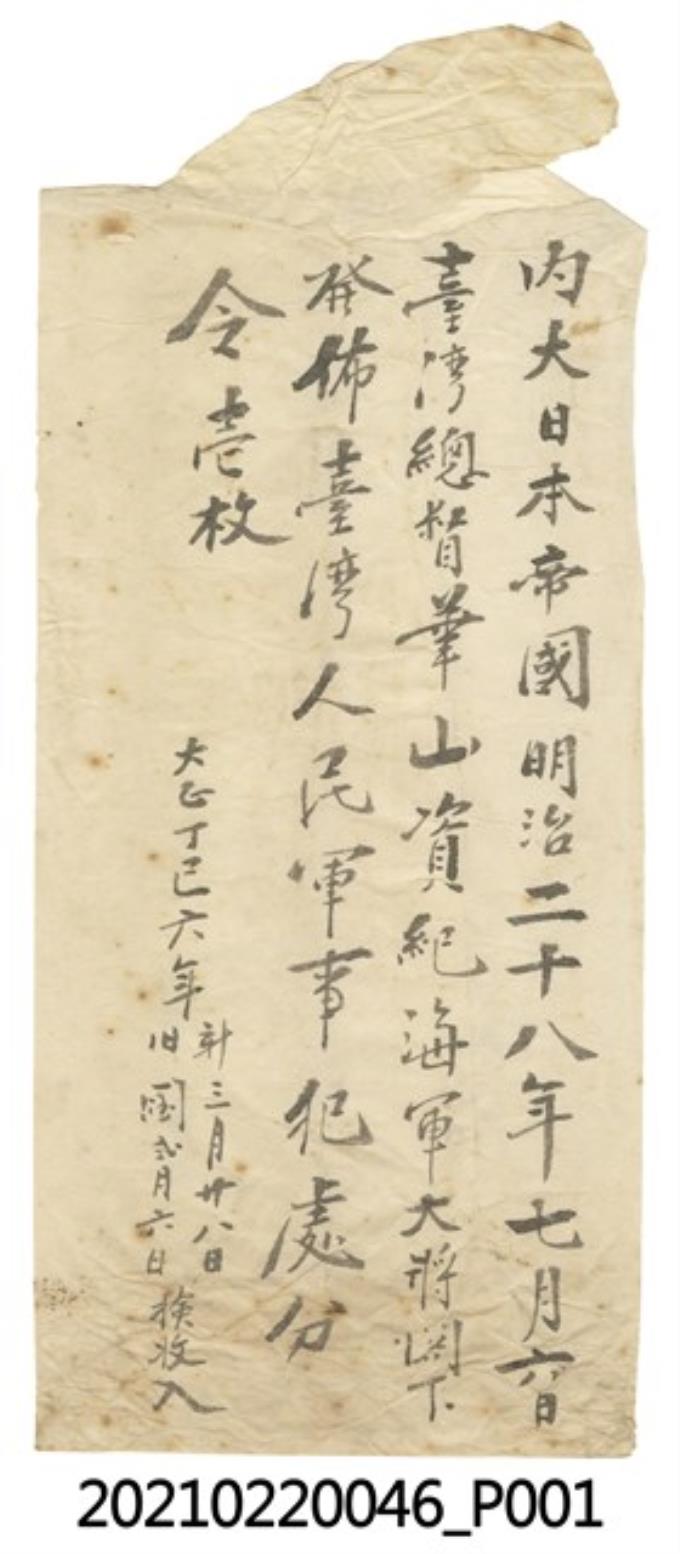 内大日本帝國明治二十八年七月六日
臺湾總督華山資紀海軍大將閣下
發佈臺湾人民軍事犯處分
令壱枚
大正丁巳六年
新三月廿八日
旧閏弍月六日
検收入
20210220046_P001